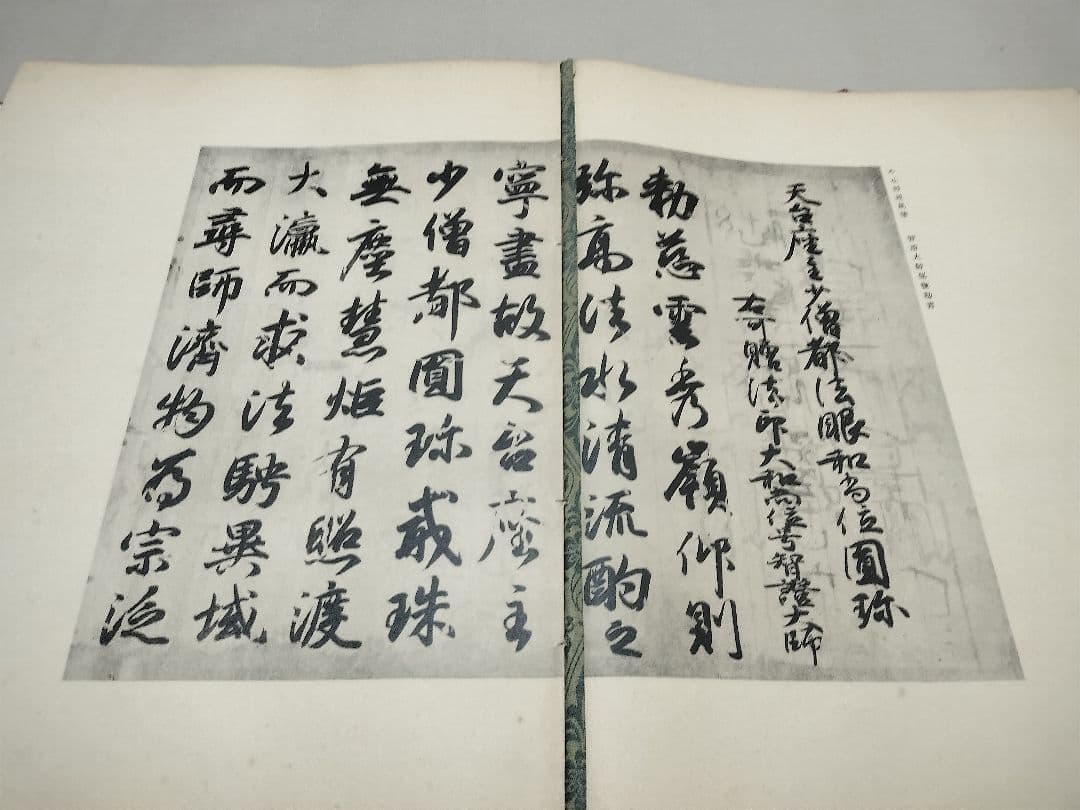 小野道風筆 智證大師諡號勅書
天台座主少僧都法眼和尚位圓珎
右可贈法印大和尚位号智證大師
勅慈雲秀嶺仰則
弥高法水清流酌之
寧盡故天台座主
少僧都圓珎戒珠
無塵慧炬有照渡
大瀛而求法騁異域
而尋師濟物為宗泛